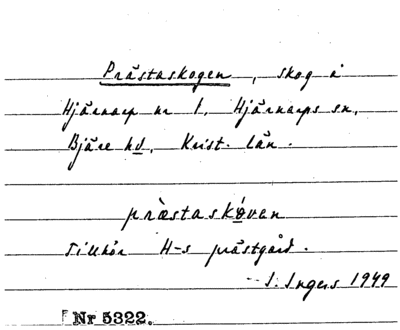 Prästaskogen, skog å
Hjärnarp nr 1, Hjärnarps sn,
Bjäre hd, Krist. län.
præ̀staskóven
Tillhör H-s prästgård.
I. Ingers 1949
Nr 5322.